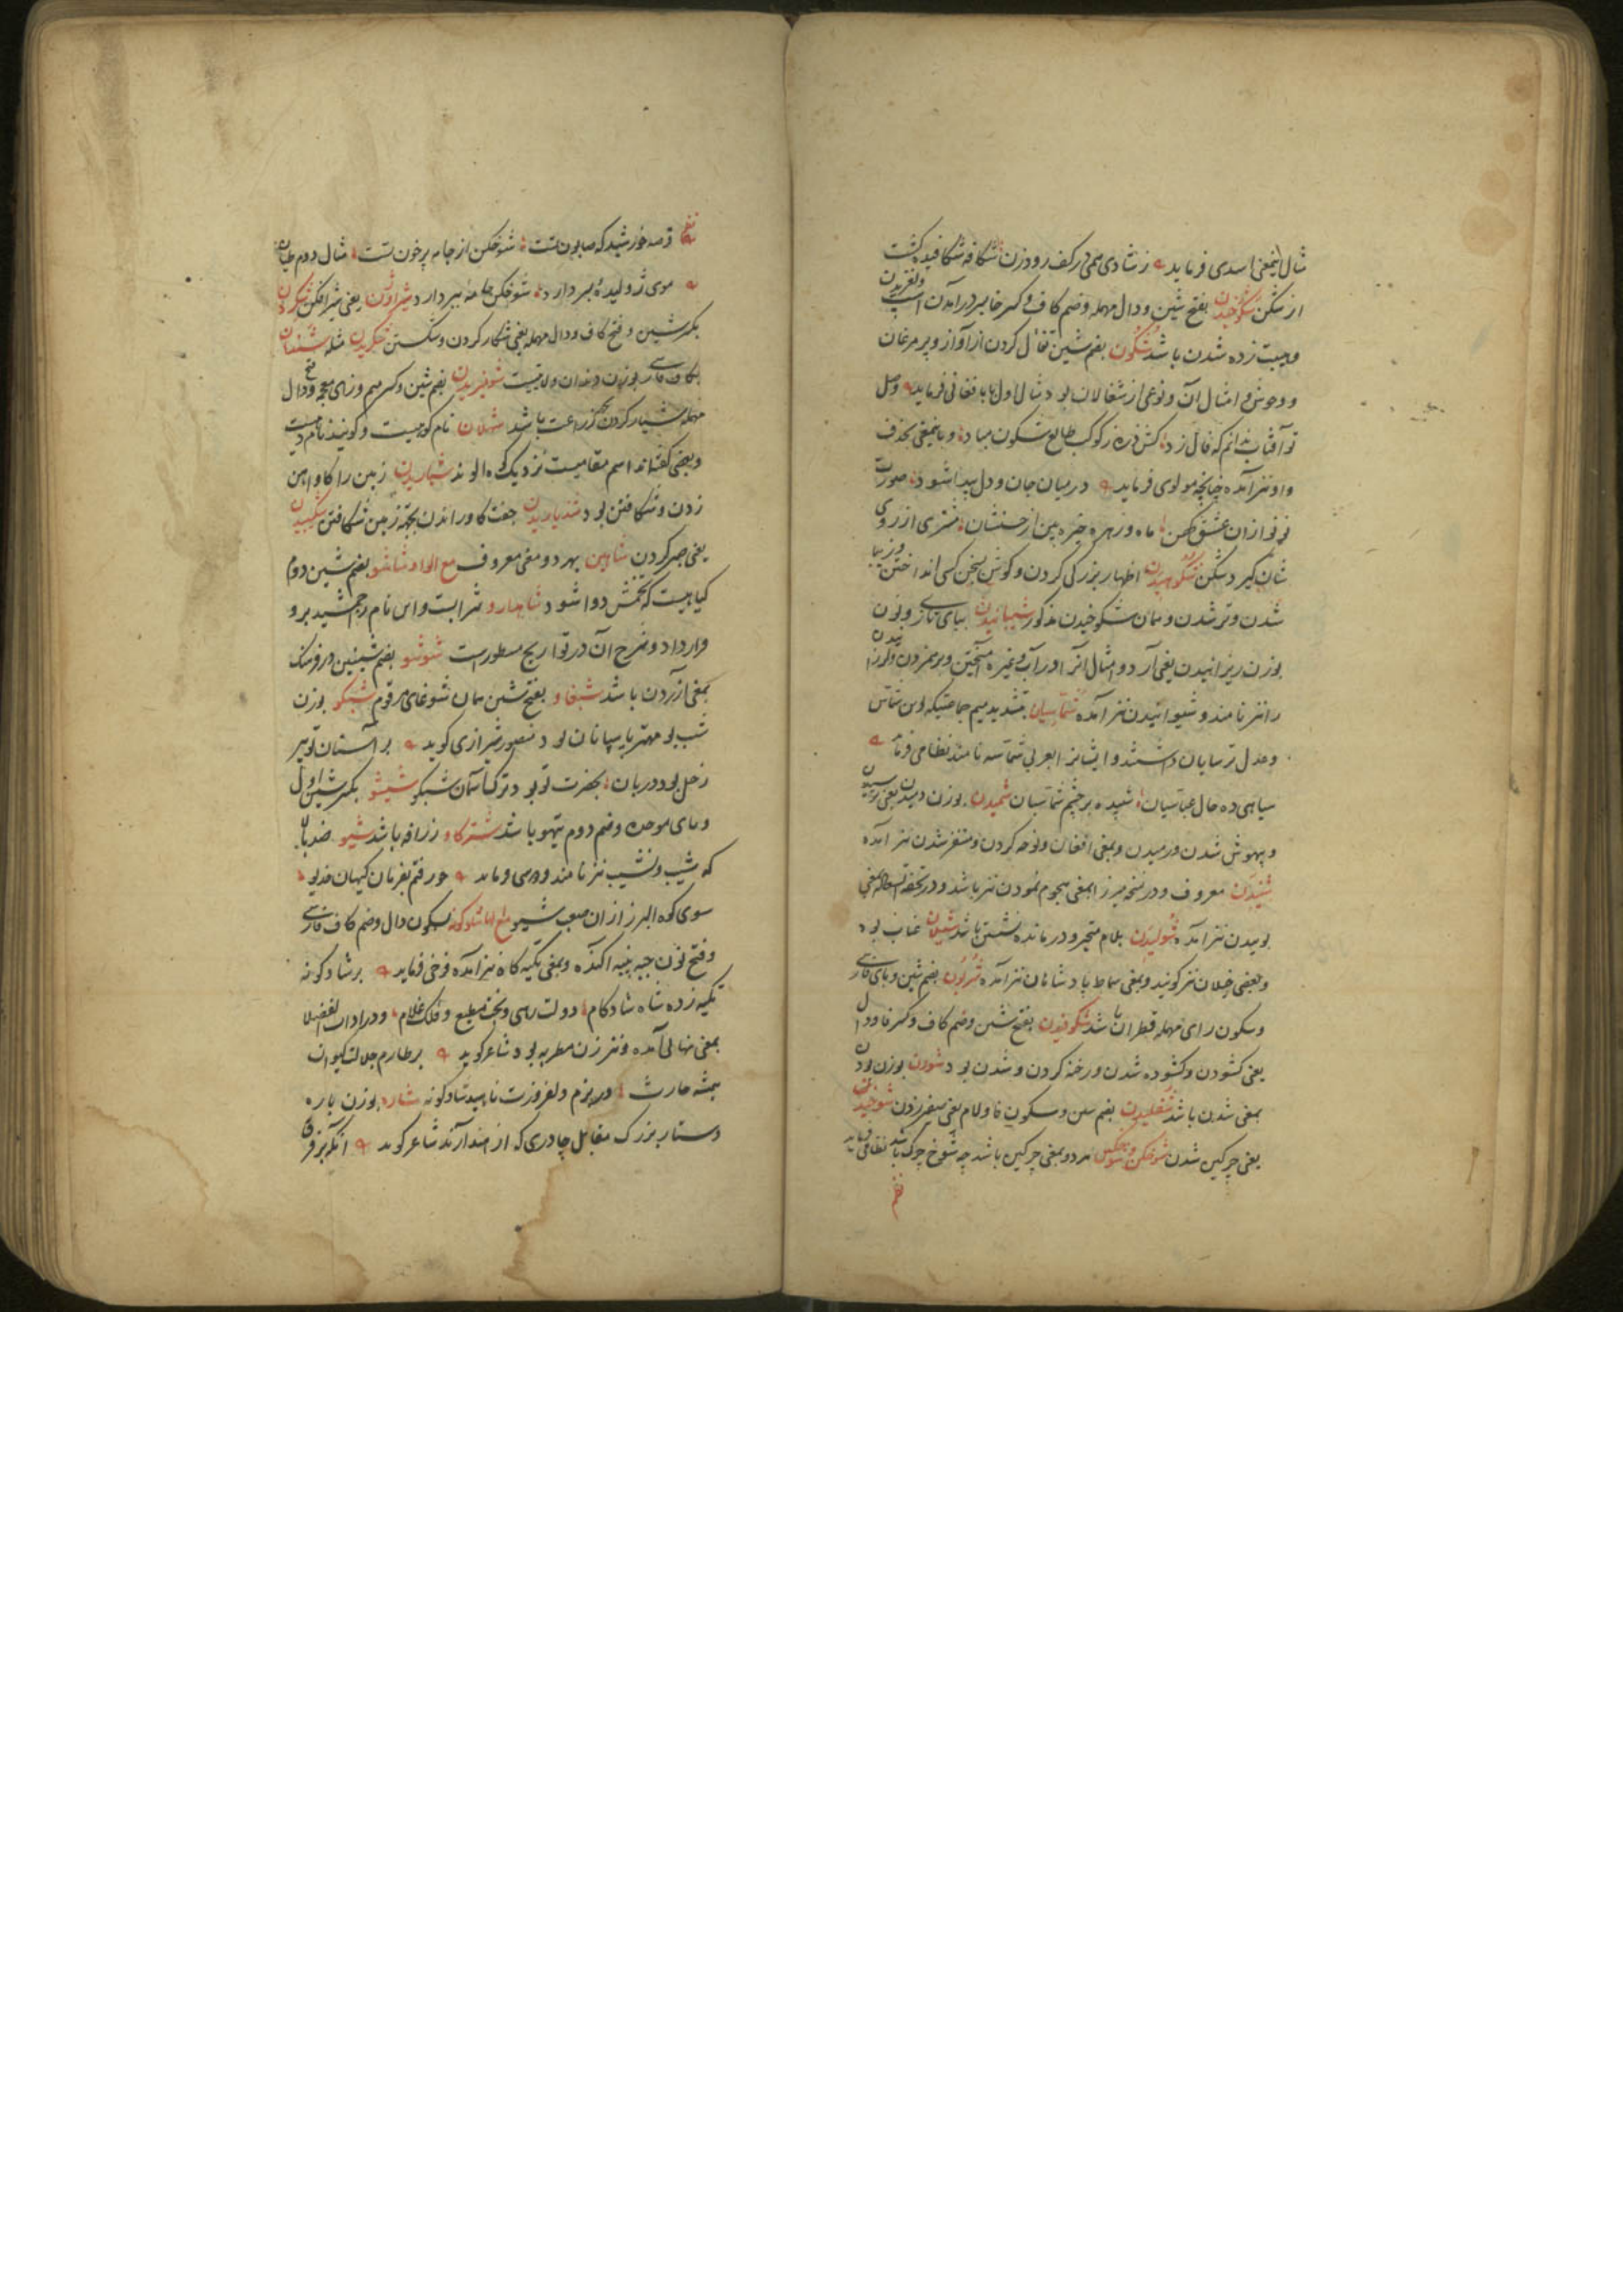 مثال این معنی اسدی فرماید ز شادی همی در کف رود زن شکافه شکافیده گشت
از شکن شکوخیدن بفتح شین و دال مهمله وضم کاف و کسر خا بسر در آمدن اسب و لغزیدن
و هیبت زده شدن باشد شگون بضم شین تفأل کردن از آواز و پر مرغان
و وحوش و امثال آن و نوعی از شغالان بود مثال اول بابا فغانی فرماید وصل
تو آفتاب ندانم که فال زد کش ذره ز کوکب طالع شکون مباد و باینمعنی بحذف
واو نیز آمده چنانچه مولوی فرماید در میان جان و دل پیدا شود صورت
نو نو از آن عشق کهن ماه و زهره خیره بین از حسنشان مشتری از روی
شان گیرد شکن شکوهیدن اظهار بزرگی کردن و گوش بسخن کسی انداختن و زیبا
شدن و تر شدن و همان شکوخیدن مذکور شیبانیدن ببای تازی و نون
بوزن ریزانیدن یعنی آرد و امثال آنرا در آب و غیره آمیختن و برهمزدن و لرزانیدن
را نیز نامند و شیوانیدن نیز آمده شماسیان بتشدید میم جماعتیکه دین شماس
و عدل ترسایان داشتند و ایشانرا بعربی شماسه نامند نظامی فرماید
سیاهی ده خال عباسیان سپیده بر چشم شماسیان شمیدن بوزن دمیدن یعنی ترسیدن
و بیهوش شدن و رمیدن و بمعنی افغان و نوحه کردن و متنفر شدن نیز آمده
شنیدن معروف و در نسخه میرزا بمعنی هجوم نمودن نیز باشد و در تحفة السعاده بمعنی
بوییدن نیز آمده شولیدن بلام متحیر و درمانده نشستن باشد شیلان عناب بود
و بعضی جیلان نیز گویند و بمعنی سماط پادشاهان نیز آمده شربون بضم شین و بای فارسی
و سکون رای مهمله قطران باشد شکوفیدن بفتح شین وضم کاف و کسر فا و دال
یعنی گشودن و گشوده شدن و رخنه کردن و شدن بود شودن بوزن بودن
بمعنی شدن باشد شفلیدن بضم شین و سکون فا و لام یعنی صفیر زدن شوخیدن
یعنی چرکین شدن شوخکن و شوخگین هر دو بمعنی چرکین باشد چه شوخ چرک باشد نظامی فرماید
نظم
نظم قرصه خورشید که صابون تست شوخکن از جامه پر خون تست مثال دوم طیان
موی ژولیده بسر دارد شوخکن جامه ببر دارد شیراوژن یعنی شیر افکن شکردن
بکسر شین و فتح کاف و دال مهمله یعنی شکار کردن و شکستن شکریدن مثله شنغان
بکاف فارسی بوزن دندان ولایتیست شومیزیدن بضم شین و کسر میم وزای معجمه و فتح دال
مهمله شیار کردن بجهت زراعت باشد شهلان نام کوهیست و گویند نام دهیست
و بعضی گفته‌اند اسم مقامیست نزدیک کوه الوند شیاریدن زمین را گاو آهن
زدن و شکافتن بود شدیاریدن جفت گاو راندن بجهة زمین شکافتن شکیبیدن
یعنی صبر کردن شاهین بهر دو معنی معروف مع الواو شاشو بضم شین دوم
گیاهیست که تخمش دوا شود شاهدارو شرابست و این نام جمشید برو
قرار داد و شرح آن در تواریخ مسطور است شوشو بضم شینین در فرهنگ
بمعنی ارزن باشد شبغاو بفتح شین همان شوغای مرقوم شبکو بوزن
شب بو مهتر پاسبانان بود منصور شیرازی گوید بر آستان تو پیر
زحل بود دربان بحضرت تو بود ترک آسمان شبکو شیشو بکسر شین اول
و بای موحده وضم دوم تیهو باشد شترگاو زرافه باشد شیو ضد بالا
که شیب و نشیب نیز نامند فردوسی فرماید خور رفتم بفرمان کیهان خدیو
سوی کوه البرز از آن صعب شیو مع الها شادگونه بسکون دال وضم کاف فارسی
و فتح نون جبه پنبه آکنده و بمعنی تکیه گاه نیز آمده فرخی فرماید بر شادگونه
تکیه زده شاه شادکام دولت رهی و بخت مطیع و فلک غلام و در ادات الفضلا
بمعنی نهالی آمده و نیز زن مطربه بود شاعر گوید بر طارم جلالت کیوان
همیشه حارث در بزم دلفروزت ناهید شادگونه شاره بوزن پاره
دستار بزرگ مقابل چادری که از هند آرند شاعر گوید آنکه بر فرق